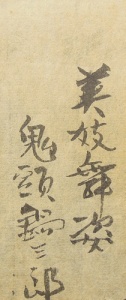 美妓舞姿
鬼頭鍋三郎